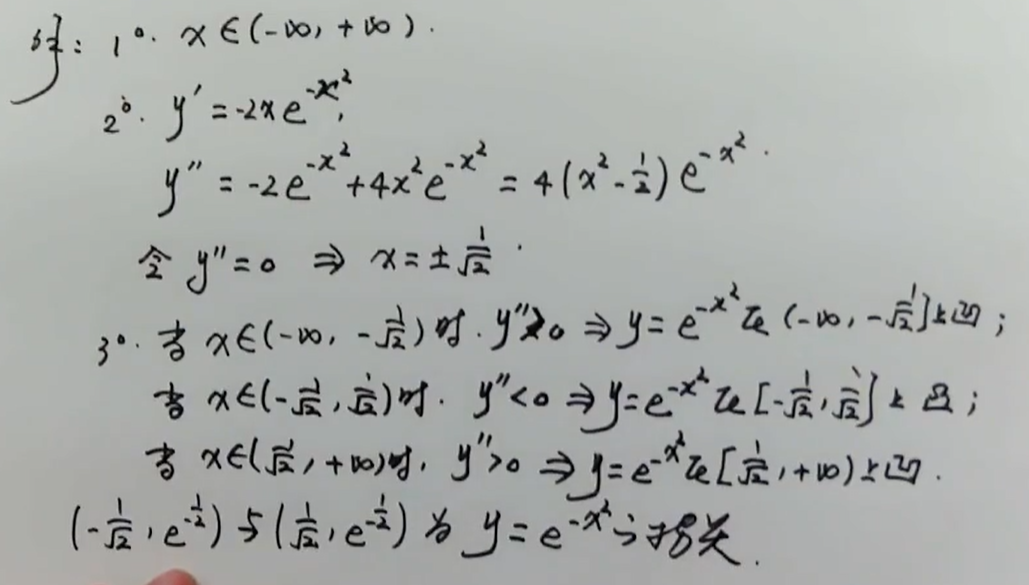 解: 1°. x∈(-∞, +∞).
2°. y' = -2xe^{-x²},
y'' = -2e^{-x²}+4x²e^{-x²} = 4(x²-1/2)e^{-x²}.
令 y''=0 ⇒ x=±1/√2.
3°. 当 x∈(-∞, -1/√2)时. y''>0 ⇒ y=e^{-x²}在(-∞, -1/√2]上凹;
当 x∈(-1/√2, 1/√2)时. y''<0 ⇒ y=e^{-x²}在[-1/√2, 1/√2]上凸;
当 x∈(1/√2, +∞)时, y''>0 ⇒ y=e^{-x²}在[1/√2, +∞)上凹.
(-1/√2, e^{-1/2})与(1/√2, e^{-1/2})为 y=e^{-x²}之拐点.